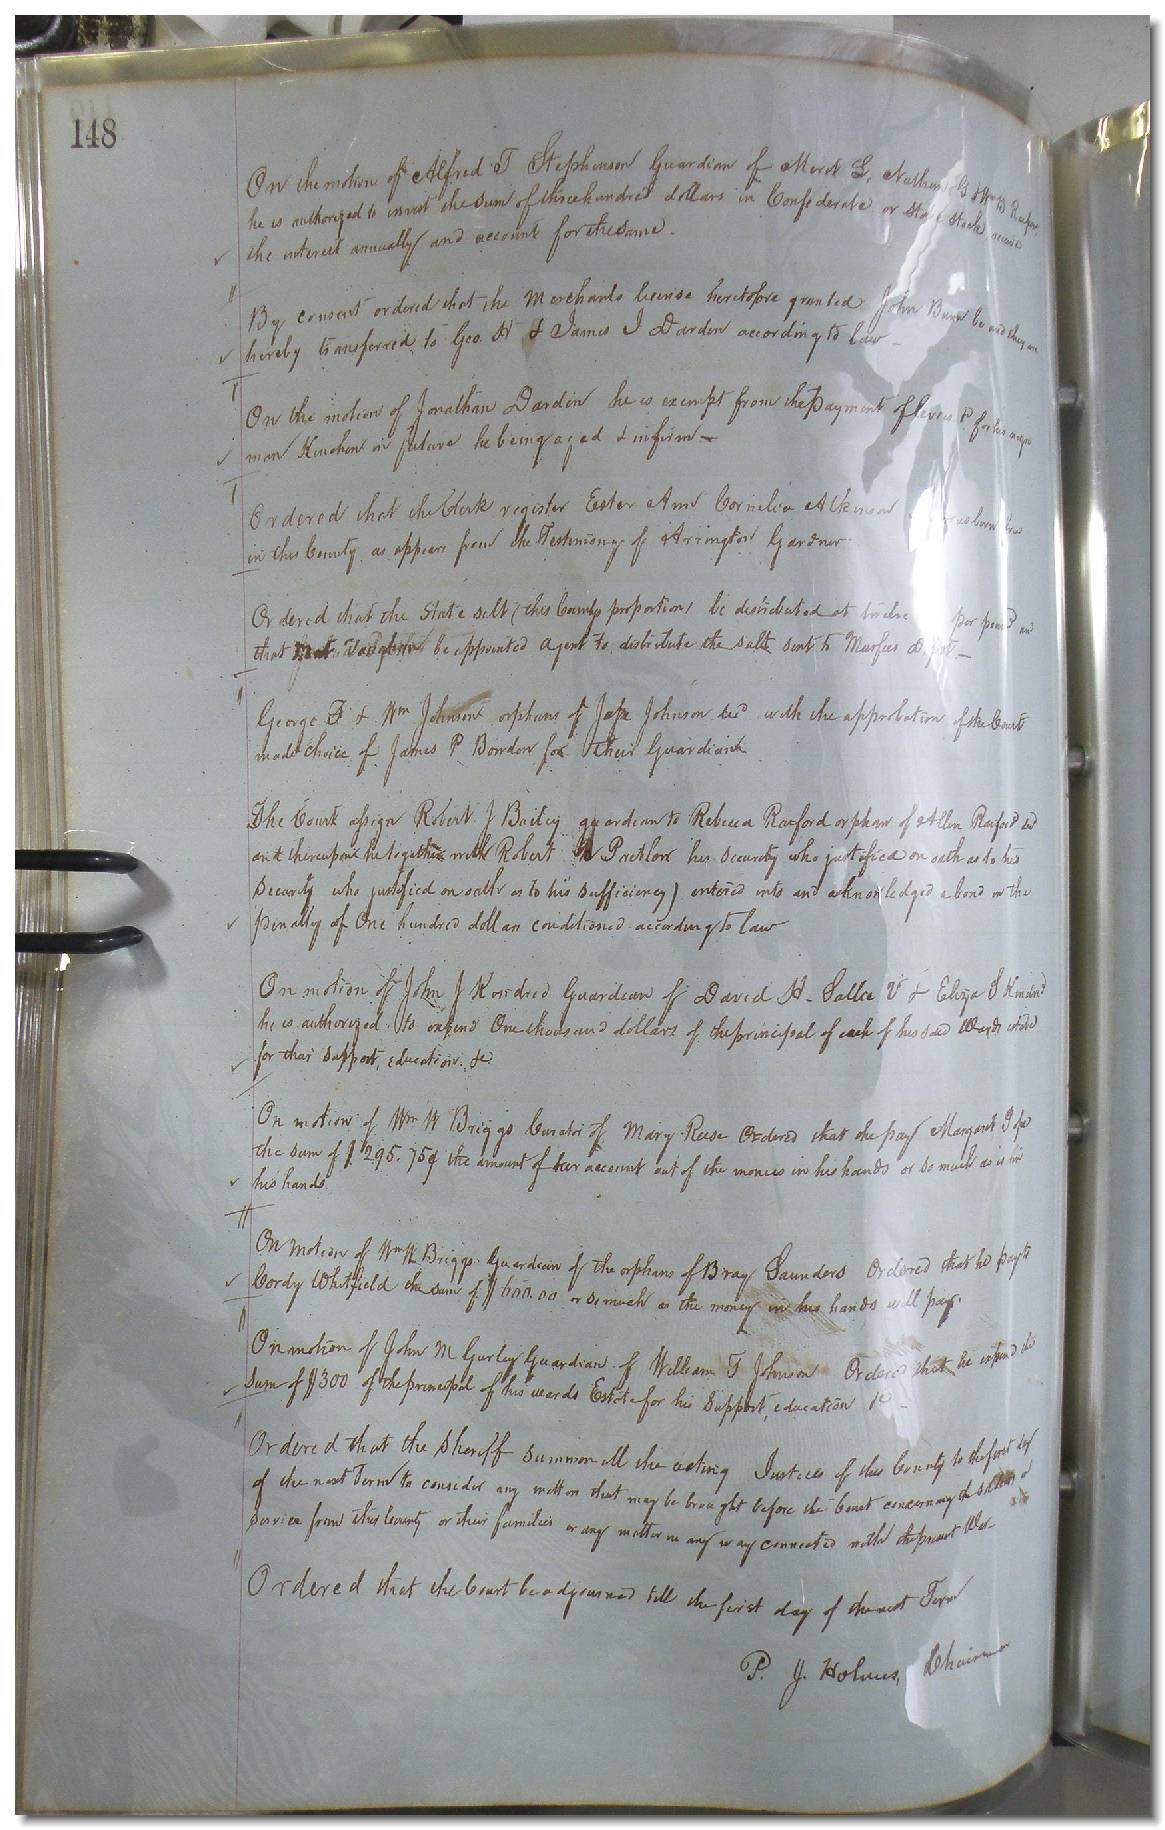 148
On the motion of Alfred T Stephenson Guardian of
he is authorized to invest the sum of three hundred dollars in Confederate or State Stock receive
the interest annually and account for the same.
By consent ordered that the Merchants license heretofore granted John be and they are
hereby transferred to Geo. H & James J Darden according to law
On the motion of Jonathan Darden he is exempt from the payment of levies & for his negro
man in future he being aged & infirm
Ordered that the Clerk register Ester Ann Cornelia Atkinson was born free
in this County as appears from the Testimony of Arrington Gardner
Ordered that the State salt (this Countys proportion) be distributed at twelve per pound and
that be appointed agent to distribute the salt sent to Murfees Depot
George F & Wm Johnson orphans of Johnson decd with the approbation of the Court
made choice of James P Bowden for their Guardian
The Court assign Robert J Bailey guardian to Rebecca Raiford orphan of Allen Raiford decd
and thereupon he together with Robert Pretlow his security who justified on oath as to his
security who justified on oath as to his sufficiency) entered into and acknowledged a bond in the
penalty of One hundred dollars conditioned according to law
On motion of John J Kindred Guardian of David H. Sallie V & Eliza S Kindred
he is authorized to expend One thousand dollars of the principal of each of his said Wards estate
for their support, education &c
On motion of Wm W Briggs Curator of Mary Reese Ordered that he pay Margaret J
the sum of $295.75¢ the amount of her account out of the monies in his hands or so much as is in
his hands
On motion of Wm W Briggs Guardian of the orphans of Bray Saunders Ordered that he pay to
Cordy Whitfield the sum of $600.00 or so much as the money in his hands will pay.
On motion of John M Gurley Guardian of William T Johnson Ordered that he expend the
sum of $300 of the principal of his wards Estate for his support, education &c
Ordered that the Sheriff summon all the acting Justices of this County to the first day
of the next Term to consider any matters that may be brought before the Court concerning the soldiers in
service from this County or their families or any matter in any way connected with the present War
Ordered that the Court be adjourned till the first day of the next Term
P. J. Holmes, Chairman